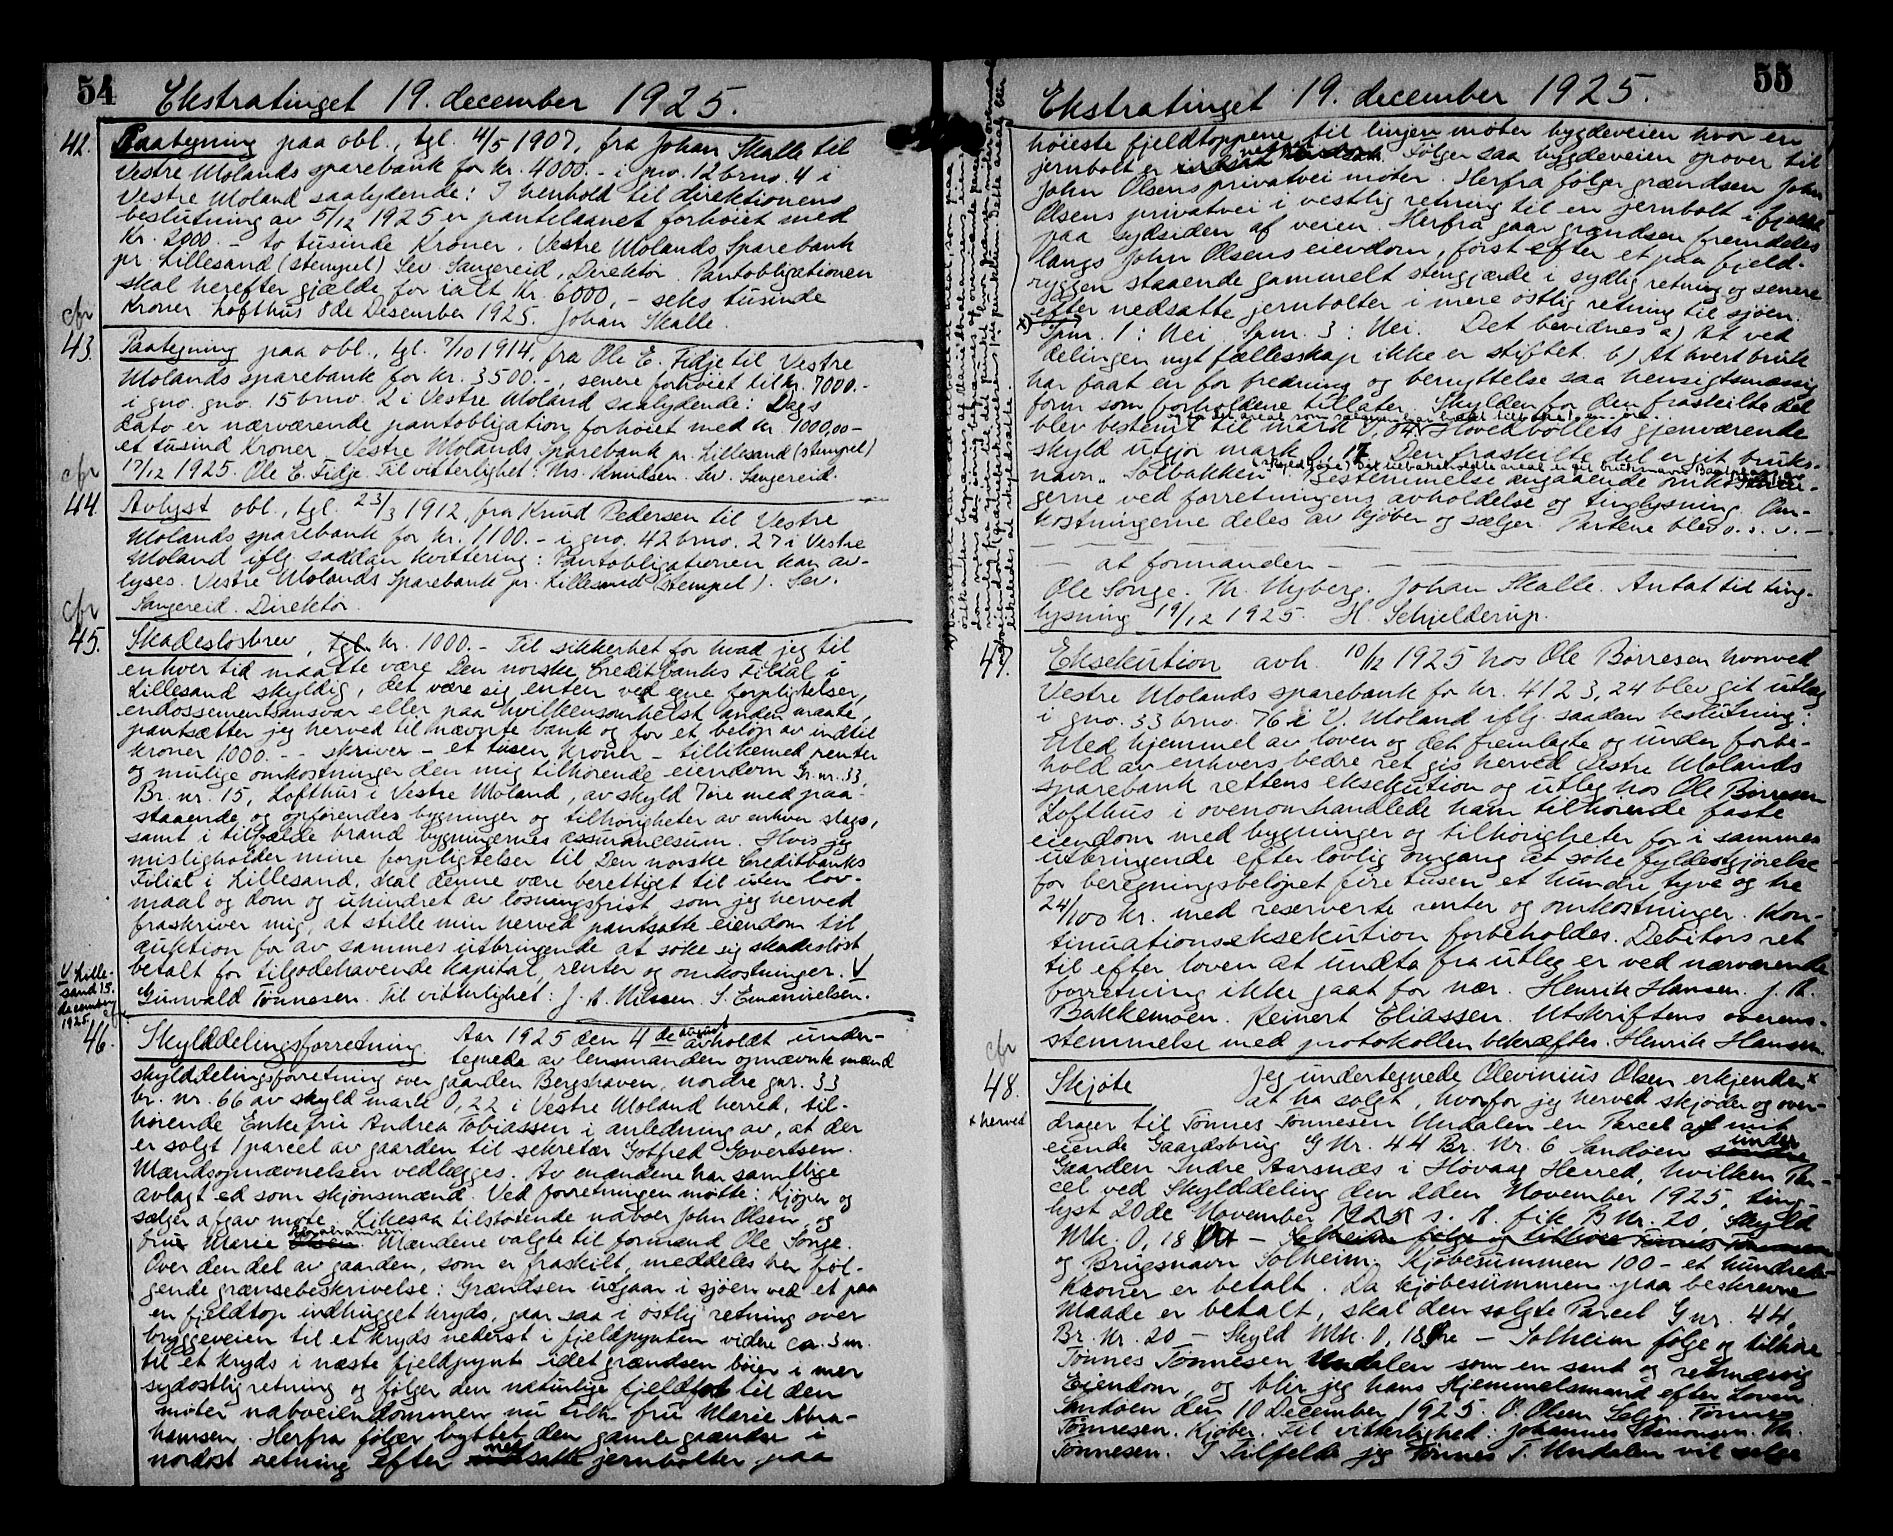 54
Ekstratinget 19. december 1925.
42. Paategning paa obl., tgl. 4/5 1907, fra Johan Skalle til
Vestre Molands sparebank for kr. 4000.- i gno. 12 brno. 4 i
Vestre Moland saalydende: I henhold til direktionens
beslutning av 5/12 1925 er pantelaanet forhøiet med
Kr. 2000.- to tusinde Kroner. Vestre Molands Sparebank
pr. Lillesand (stempel) Sev. Sangereid, Direktør Pantobligationen
skal herefter gjælde for ialt Kr. 6000,- seks tusinde
Kroner Lofthus 8de Desember 1925. Johan Skalle.
cfr
43. Paategning paa obl., tgl. 7/10 1914, fra Ole E. Fidje til Vestre
Molands sparebank for kr. 3500.-, senere forhøiet til kr. 7000.-
i gno. gno. 15 brno. 2 i Vestre Moland saalydende: Dags
dato er nærværende pantobligation forhøiet med kr. 1000,00-
et tusind Kroner Vestre Molands Sparebank pr. Lillesand (stempel)
17/12 1925. Ole E. Fidje. Til vitterlighet: Ths. Knudsen. Sev. Sangereid.
cfr
44. Avlyst obl., tgl. 23/3 1912, fra Knud Pedersen til Vestre
Molands sparebank for kr. 1100.- i gno. 42 brno. 27 i Vestre
Moland iflg. saadan kvittering: Pantobligationen kan av-
lyses. Vestre Molands Sparebank pr. Lillesand (stempel). Sev.
Sangereid. Direktør.
cfr
45. Skadesløsbrev, tgl. kr. 1000.- Til sikkerhet for hvad jeg til
enhver tid maatte være Den norske Creditbanks Filial i
Lillesand skyldig, det være sig enten ved egne forpligtelser,
endossementsansvar eller paa hvilkensomhelst anden maate,
pantsætter jeg herved til nævnte bank og for et beløp av indtil
kroner 1000.- - skriver - et tusen kroner - tillikemed renter
og mulige omkostninger den mig tilhørende eiendom Gr. nr. 33
Br. nr. 15, Lofthus i Vestre Moland, av skyld 7 øre med paa-
staaende og opførendes bygninger og tilhørigheter av enhver slags,
samt i tilfælde brand bygningernes assurancesum. Hvis jeg
misligholder mine forpligtelser til Den norske Creditbanks
Filial i Lillesand, skal denne være berettiget til uten lov-
maal og dom og uhindret av løsningsfrist som jeg herved
fraskriver mig, at stille min herved pantsatte eiendom til
auktion for av sammes utbringende at søke sig skadesløst
betalt for tilgodehavende kapital, renter og omkostninger. V
V Lille-
sand 15.
december
1925.
Gunvald Tønnesen. Til vitterlighet: J. A. Nilssen. S. Emanuelsen.
cfr
46. Skylddelingsforretning. Aar 1925 den 4 de august avholdt under-
tegnede av lensmanden opnævnte mænd
skylddelingsforretning over gaarden Bergshaven, nordre gnr. 33
br. nr. 66 av skyld mark 0,22 i Vestre Moland herred, til-
hørende Enkefru Andrea Tobiassen i anledning av, at der
er solgt 1 parcel av gaarden til sekretær Gotfred Govertsen.
Mændsopnævnelsen vedlegges. Av mændene har samtlige
avlagt ed som skjønsmænd. Ved forretningen møtte: Kjøper og
sælger afgav møte. Likesaa tilstøtende naboer John Olsen og
frue Marie Abrahamsen. Mændene valgte til formand Ole Songe.
Over den del av gaarden, som er fraskilt, meddeles her føl-
gende grænsebeskrivelse: Grændsen utgaar i sjøen ved et paa
en fjeldtop indhugget kryds, gaar saa i østlig retning over
bryggeveien til et kryds nederst i fjeldpynten videre ca. 3 m.
til et kryds i næste fjeldpynt idet grændsen bøier i mer
sydøstlig retning og følger den naturlige fjeldfot til den
møter naboeiendommen nu tilh. fru Marie Abra-
hamsen. Herfra følger byttet den gamle grændse i
nordøst retning efter nedsatte jernbolter paa
55
Ekstratinget 19. december 1925.
høieste fjeldtoppene til linjen møter bygdeveien hvor en
jernbolt er nedsat. Følger saa bygdeveien opover til
John Olsens privatvei møter. Herfra følger grændsen John
Olsens privatvei i vestlig retning til en jernbolt i fjeldet
paa sydsiden af veien. Herfra gaar grændsen fremdeles
langs John Olsens eiendom, først efter et paa fjeld-
ryggen staaende gammelt stengjærde i sydlig retning og senere
efter nedsatte jernbolter i mere østlig retning til sjøen.
x) Spm. 1: Nei Spm. 3: Nei. Det bevidnes a) At ved
delingen nyt fællesskap ikke er stiftet. b) At hvert bruk
har faat en for fredning og benyttelse saa hensigtsmæssig
form som forholdene tillater. Skylden for den fraskilte del
blev bestemt til mark 0,04. Hovedbøllets gjenværende
skyld utgjør mark 0,17. Den fraskilte del er git bruks-
navn „Solbakken". Bestemmelse angaaende omkostnin-
gerne ved forretningens avholdelse og tinglysning. Om-
kostningerne deles av kjøber og sælger. Partene blev o. s. v. -
- at formanden -
Ole Songe. Th. Nyberg. Johan Skalle. Antat til ting-
lysning 19/12 1925. H. Schjelderup.
47. Eksekution avh. 10/12 1925 hos Ole Børresen hvorved
Vestre Molands sparebank for kr. 4123,24 blev git utlæg
i gno. 33 brno. 76 i V. Moland iflg. saadan beslutning:
Med hjemmel av loven og det fremlagte og under forbe-
hold av enhvers bedre ret gis herved Vestre Molands
sparebank rettens eksekution og utleg hos Ole Børresen
Lofthus i ovenomhandlede ham tilhørende faste
eiendom med bygninger og tilhørigheter for i sammes
utbringende efter lovlig omgang at søke fyldestgjørelse
for beregningsbeløpet fire tusen et hundre tyve og tre
24/100 kr. med reserverte renter og omkostninger. Kon-
tinuationseksekution forbeholdes. Debitors ret
til efter loven at undta fra utleg er ved nærværende
forretning ikke gaat for nær. Henrik Hansen. J. A.
Bakkemoen. Reinert Eliassen. Utskriftens overens-
stemmelse med protokollen bekræftes. Henrik Hansen.
cfr
48. Skjøte Jeg undertegnede Olevinius Olsen erkjender x
x herved
at ha solgt, hvorfor jeg herved skjøder og over-
drager til Tønnes Tønnesen Undalen en Parcel af mit
eiende Gaardsbrug G Nr. 44 Br. Nr. 6 Sandøen under
Gaarden Indre Aarsnæs i Høvaag Herred, hvilken Par-
cel ved Skylddeling den 2den November 1925, ting-
lyst 20de November 1925 s. A. fik B Nr. 20, Skyld
Mk. 0,18 Øre - Solheim følge og tilhøre Tønnes Tønnesen
og Brugsnavn Solheim. Kjøbesummen 100 - et hundrede
Kroner er betalt. Da kjøbesummen paa beskrevne
Maade er betalt, skal den solgte Parcel G nr. 44,
Br. Nr. 20 - Skyld Mk. 0,18 Øre - Solheim følge og tilhøre
Tønnes Tønnesen Undalen som en sand og retmæssig
Eiendom, og blir jeg hans Hjemmelsmand efter Loven
Sandøen den 10 December 1925. O. Olsen Selger. Tønnes
Tønnesen. Kjøber. Til vitterlighed: Johannes Simonsen. Th.
Tønnesen. I Tilfælde jeg Tønnes T. Undalen vil selge